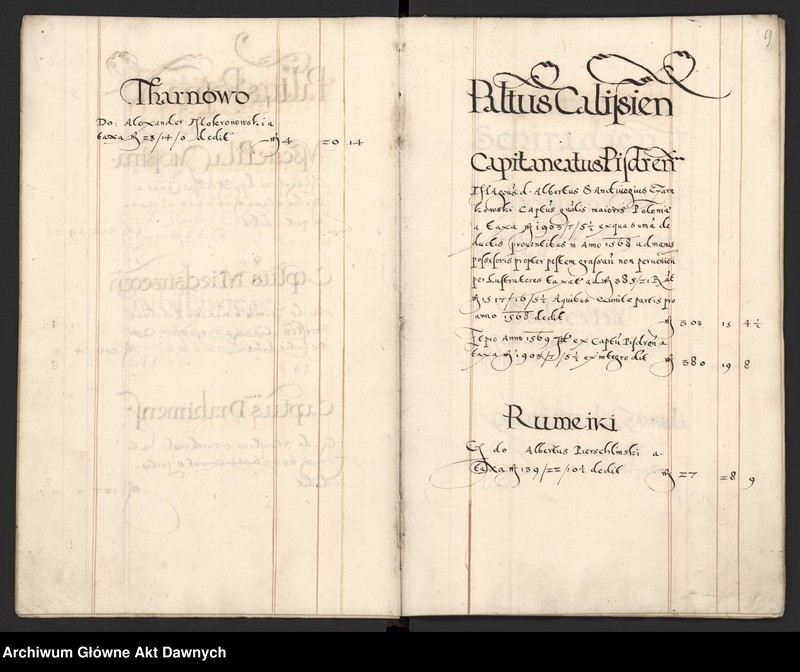 Tharnowo
Do: Alexander Mokronowski a
taxa 23/14/0 dedit 4 20 14
9
Paltus Calissien
Capitaneatus Pisdren
d. Albertus Sandiuogius Czarn
kowski Captus gnalis maioris Polonia
a taxa 1903/7/5½ ex qua suma de
ductis prouentibus in Anno 1568 ad manus
possesoris propter pestem grassan non peruenien
per Lustratores taxat ad 385/21
1517/16/5½ A quibus partis pro
anno 1568 dedit 303 15 4½
It pro Anno 1569 ex Captu Pisdren a
taxa 1903/7/5½ ex integro dit 380 19 8
Rumeiki
G do Albertus a
taxa 139/22/10½ dedit 27 28 9
Archiwum Główne Akt Dawnych